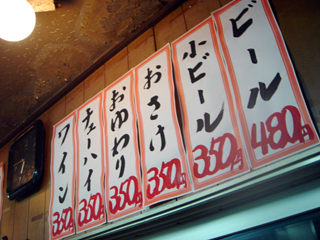 ビール
480円
小ビール
350円
おさけ
350円
おゆわり
350円
チューハイ
350円
ワイン
350円